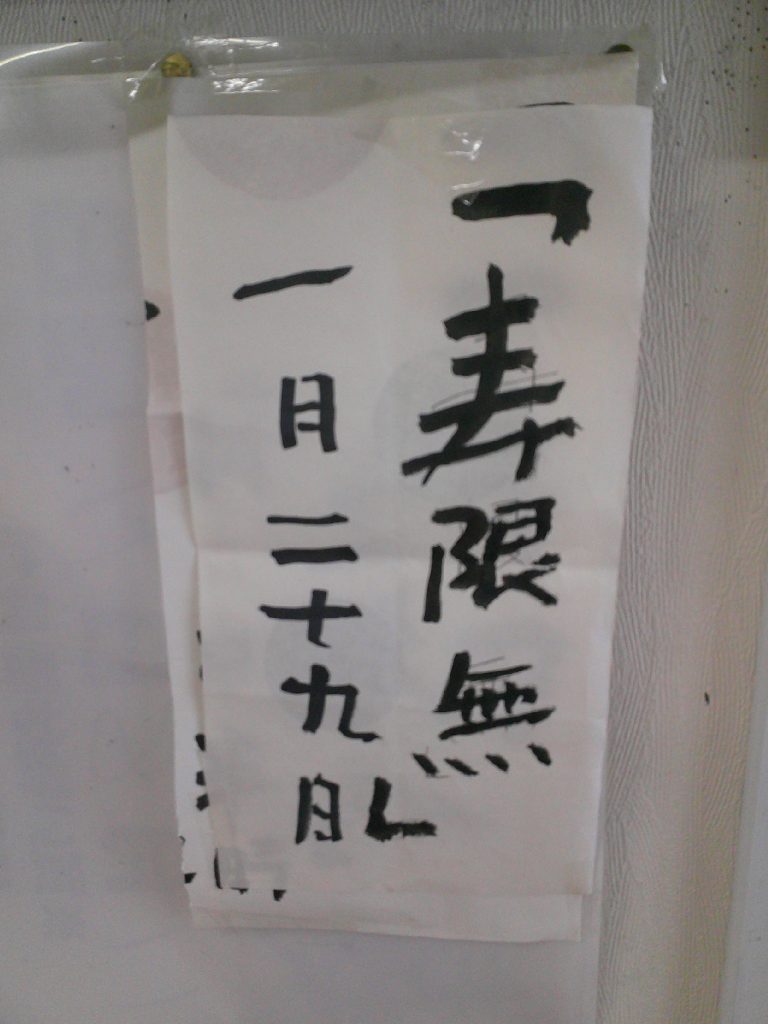 「寿限無」
一日二十九月